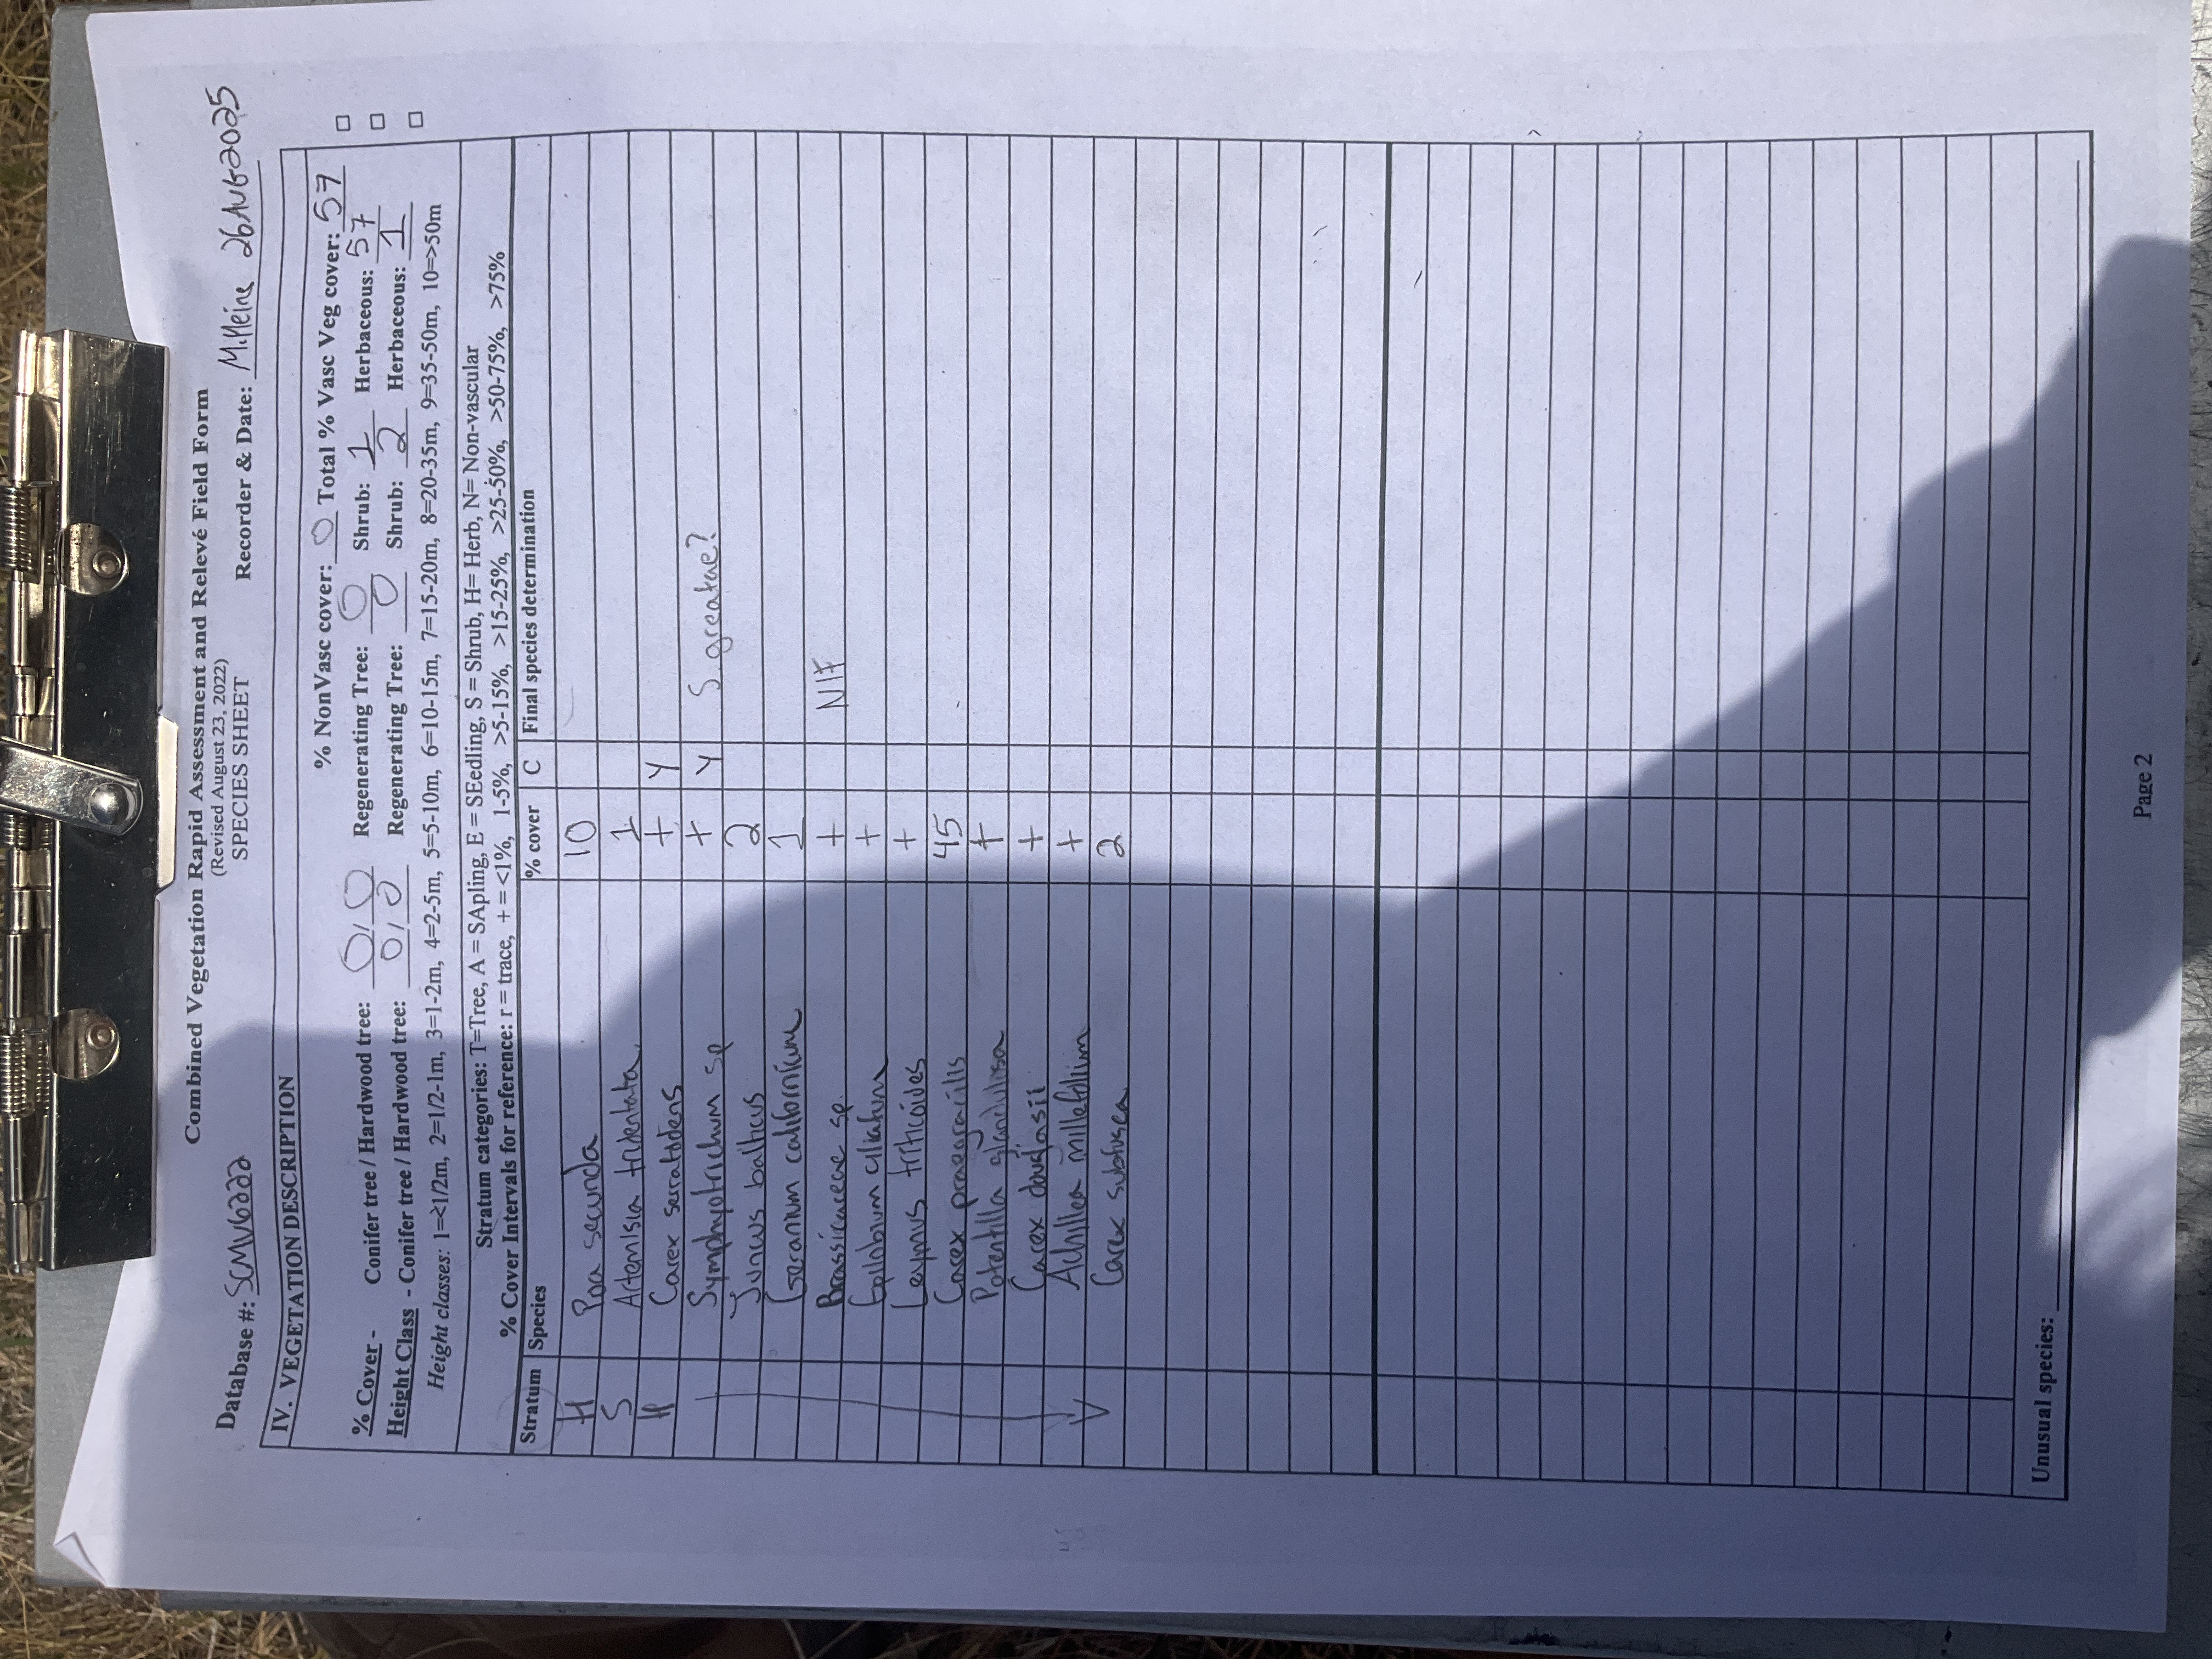 Combined Vegetation Rapid Assessment and Relevé Field Form
(Revised August 23, 2022)
Database #: SCMV6222 SPECIES SHEET Recorder & Date: M.Meine 26AUG2025
IV. VEGETATION DESCRIPTION
% NonVasc cover: 0 Total % Vasc Veg cover: 57
% Cover - Conifer tree / Hardwood tree: 0/0 Regenerating Tree: 0 Shrub: 1 Herbaceous: 57
Height Class - Conifer tree / Hardwood tree: 0/0 Regenerating Tree: 0 Shrub: 2 Herbaceous: 1
Height classes: 1=<1/2m, 2=1/2-1m, 3=1-2m, 4=2-5m, 5=5-10m, 6=10-15m, 7=15-20m, 8=20-35m, 9=35-50m, 10=>50m
Stratum categories: T=Tree, A = SApling, E = SEedling, S = Shrub, H= Herb, N= Non-vascular
% Cover Intervals for reference: r = trace, + = <1%, 1-5%, >5-15%, >15-25%, >25-50%, >50-75%, >75%
Stratum Species % cover C Final species determination
H Poa secunda 10
S Artemisia tridentata 1
H Carex serratodens + Y
Symphyotrichum sp + Y S. greatae?
Juncus balticus 2
Geranium californicum 1
Brassicaceae sp. + NIF
Epilobium ciliatum +
Leymus triticoides +
Carex praegracilis 45
Potentilla glandulosa +
Carex douglasii +
Achillea millefolium +
Carex subfusca 2
Unusual species:
Page 2